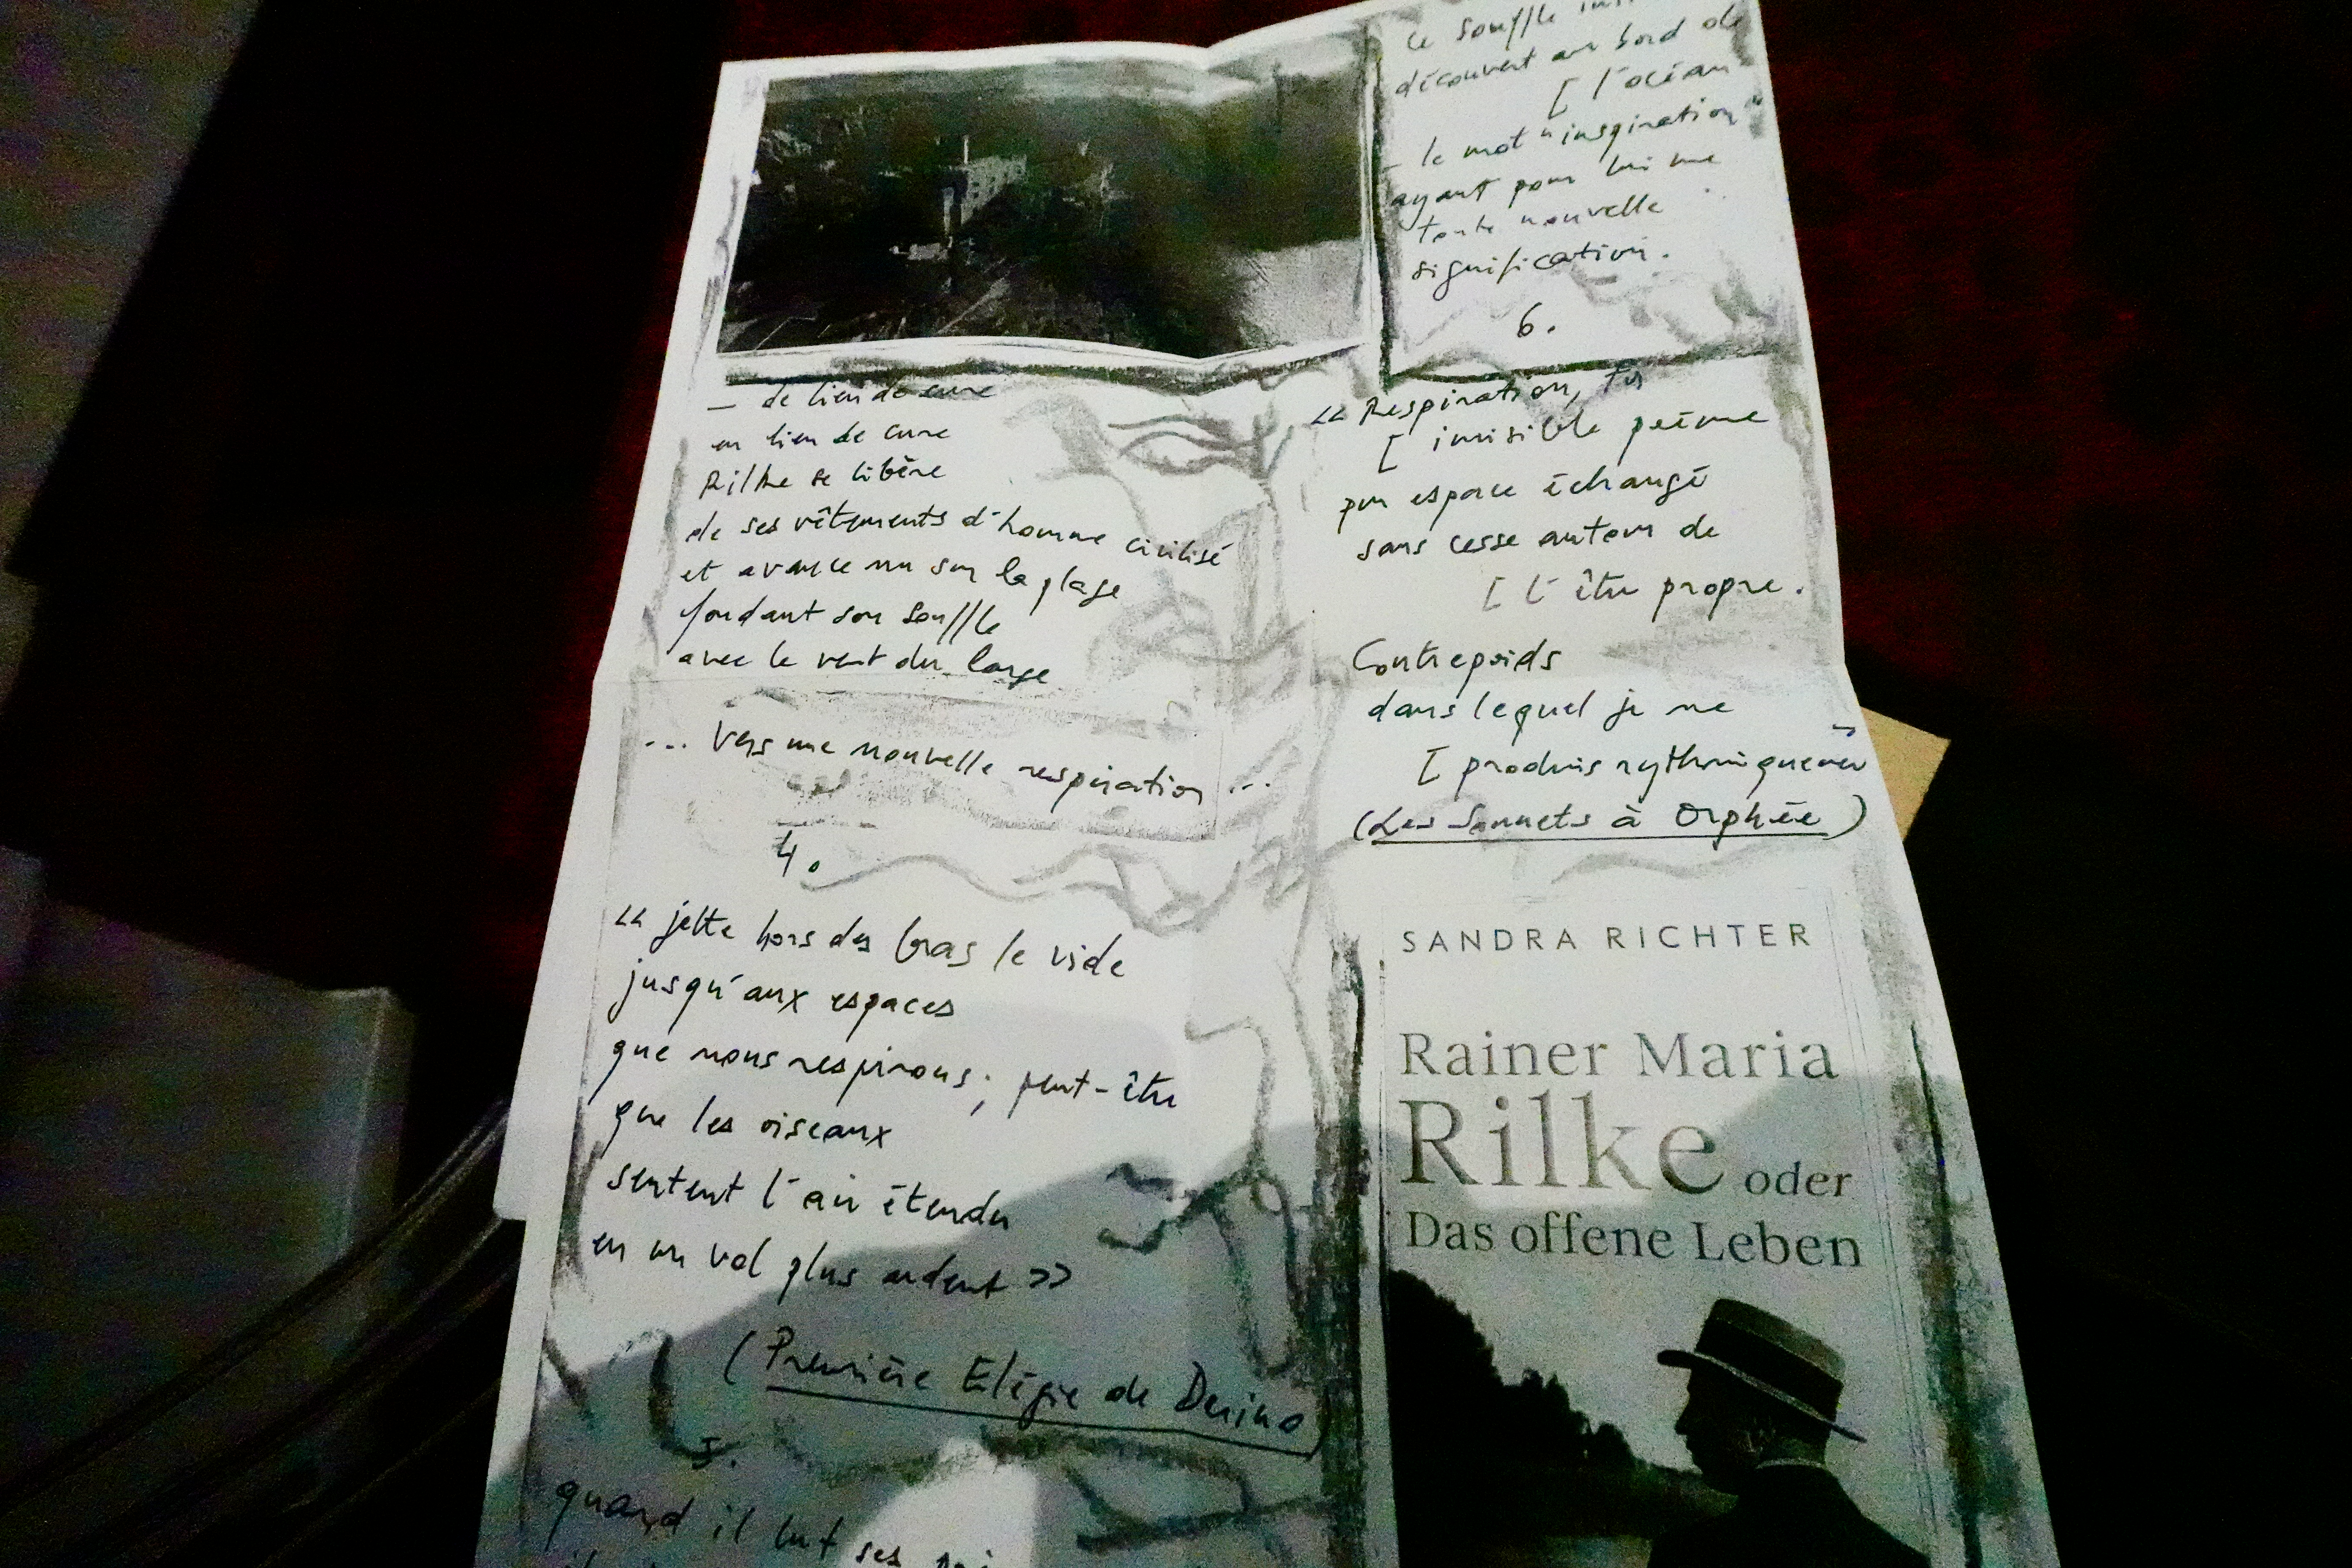 — de lieu de cure
en lieu de cure
Rilke se libère
de ses vêtements d'homme civilisé
et avance nu sur la plage
fondant son souffle
avec le vent du large
... vers une nouvelle respiration ...
4.
« jette hors des bras le vide
jusqu'aux espaces
que nous respirons; peut-être
que les oiseaux
sentent l'air étendu
en un vol plus ardent »
(Première Elégie de Duino)
5.
quand il lut ses
ce souffle
découvert au bord de
[ l'océan
– le mot "inspiration"
ayant pour lui une
toute nouvelle
signification.
6.
« Respiration, tu
[ invisible poème
pur espace échangé
sans cesse autour de
[ l'être propre.
Contrepoids
dans lequel je me
[ produis rythmiquement »
(Les Sonnets à Orphée)
SANDRA RICHTER
Rainer Maria
Rilke oder
Das offene Leben